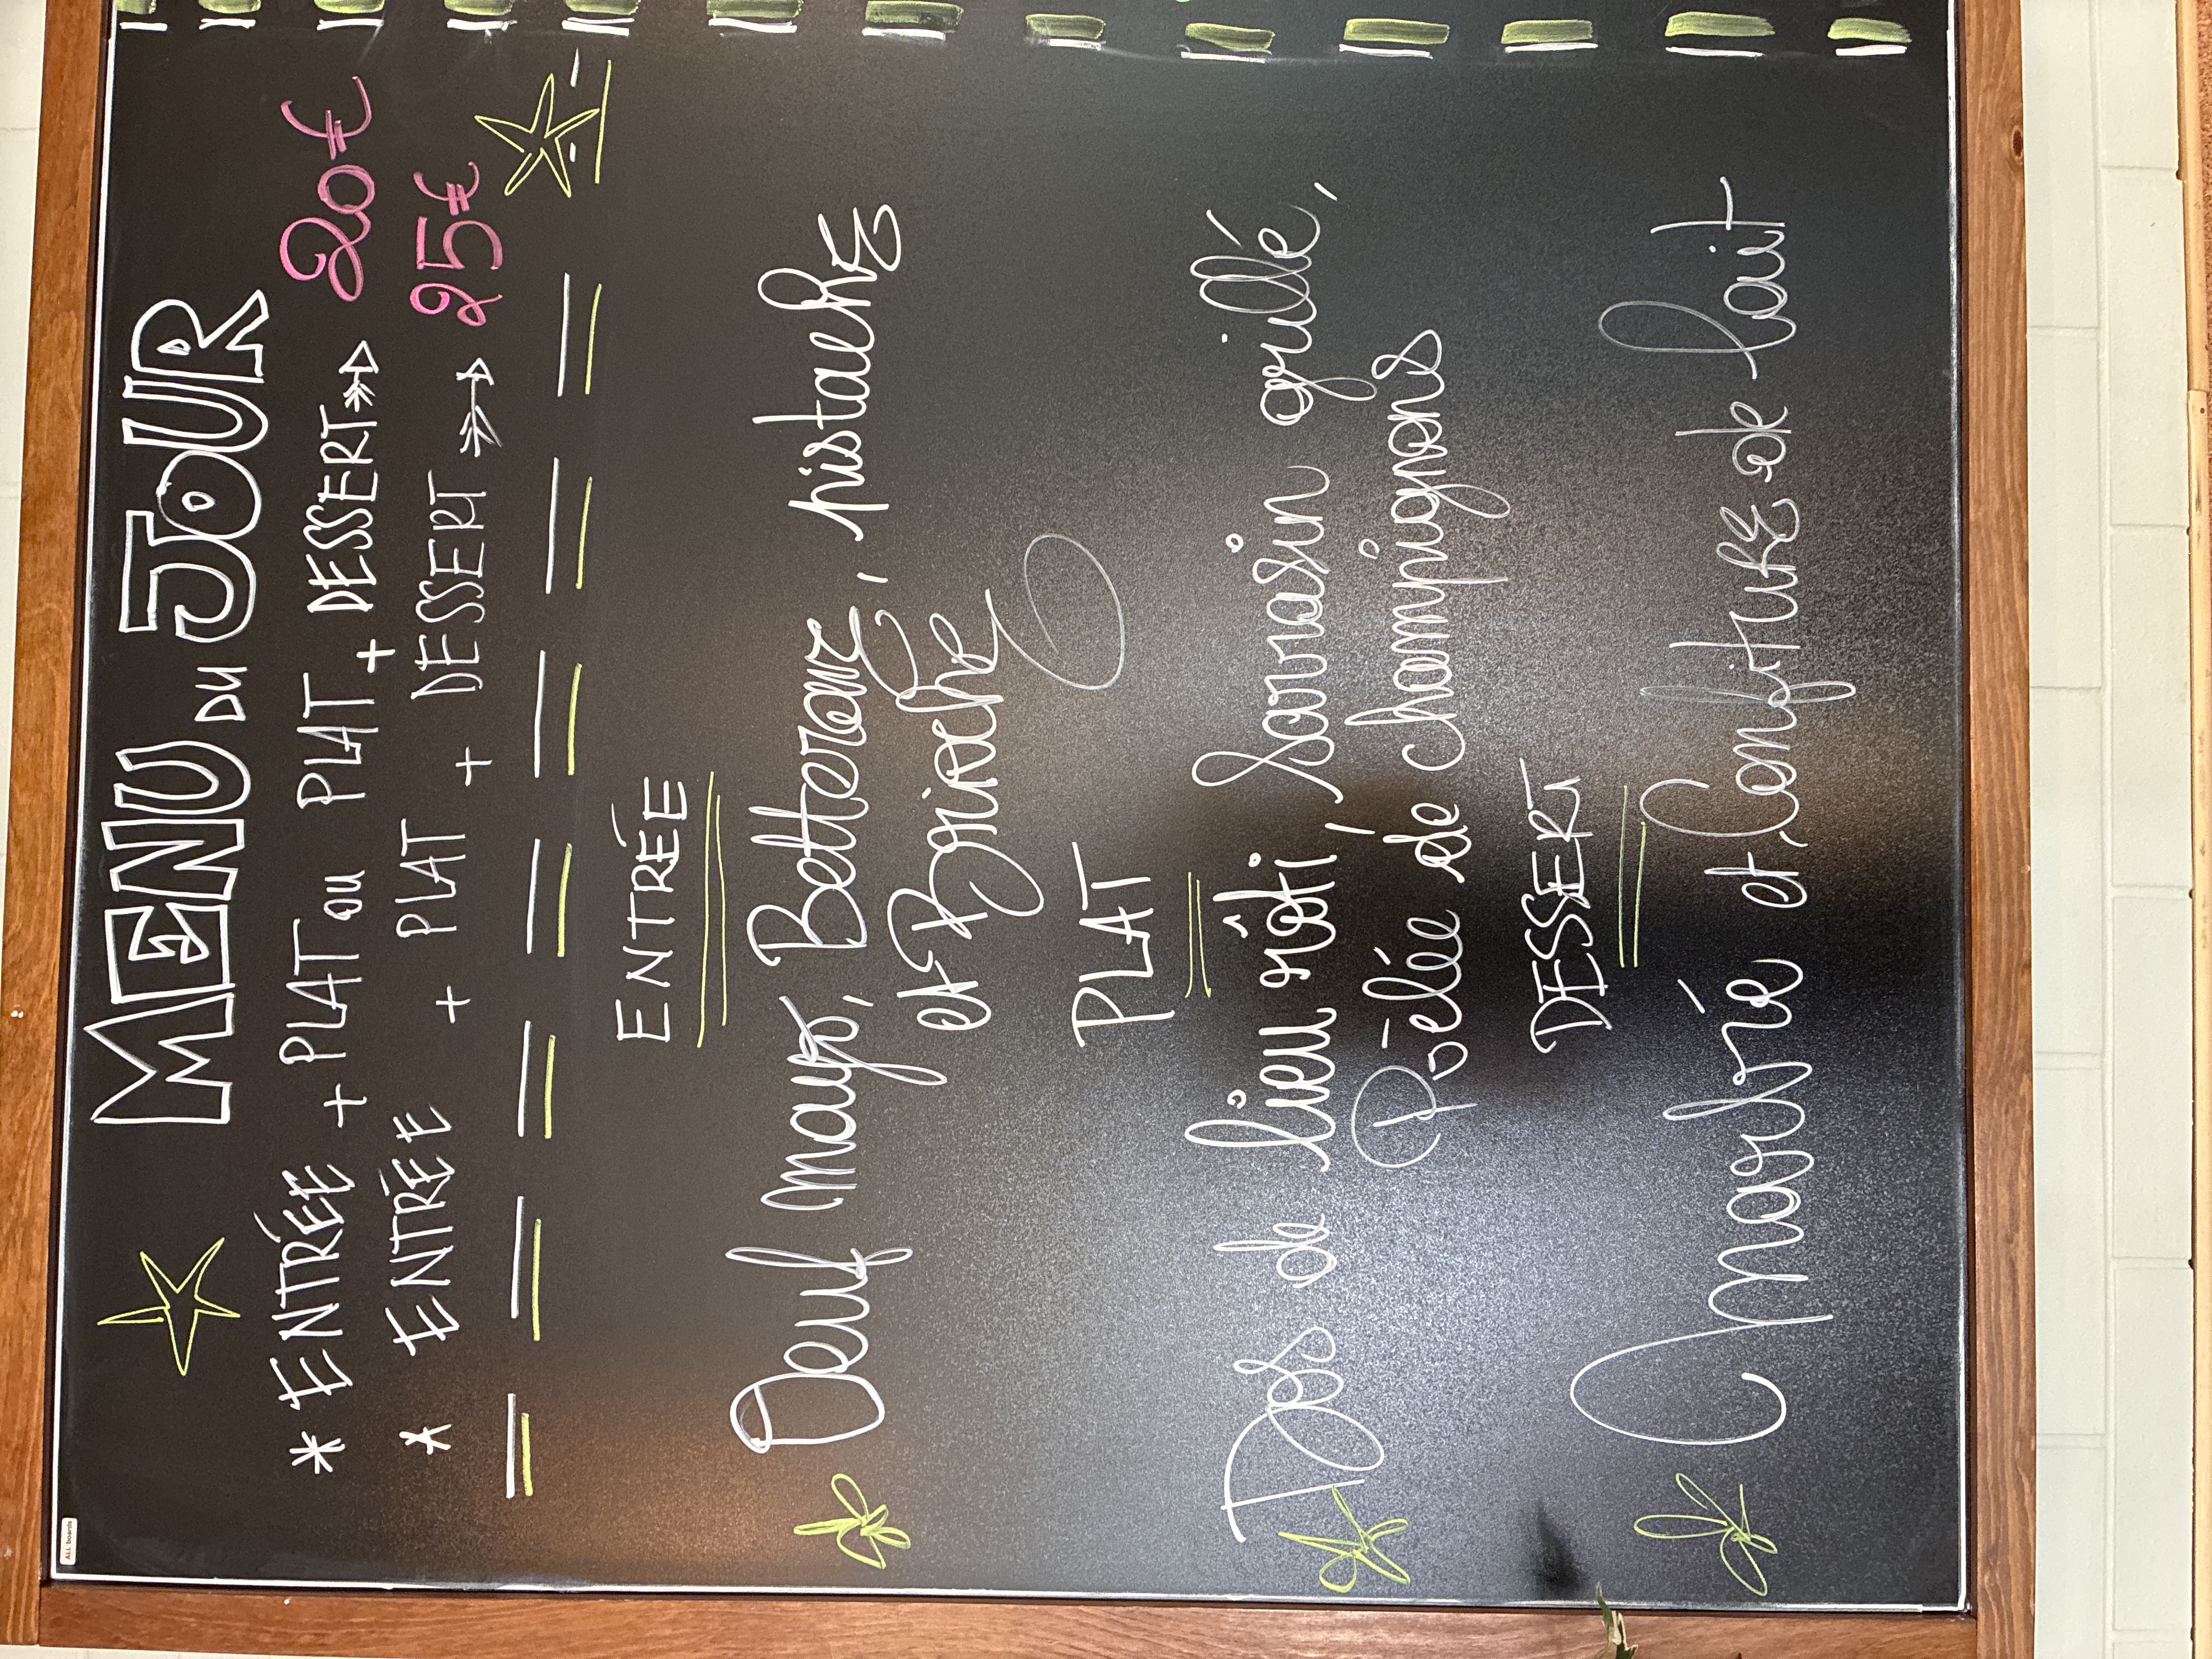 MENU DU JOUR
* ENTRÉE + PLAT ou PLAT + DESSERT 20€
* ENTRÉE + PLAT + DESSERT 25€
ENTRÉE
Oeuf mayo, Betterave, pistache
et Brioche
PLAT
Dos de lieu rôti, Sarrasin grillé,
Poêlée de champignons
DESSERT
Marbré et Confiture de lait
ALL boards